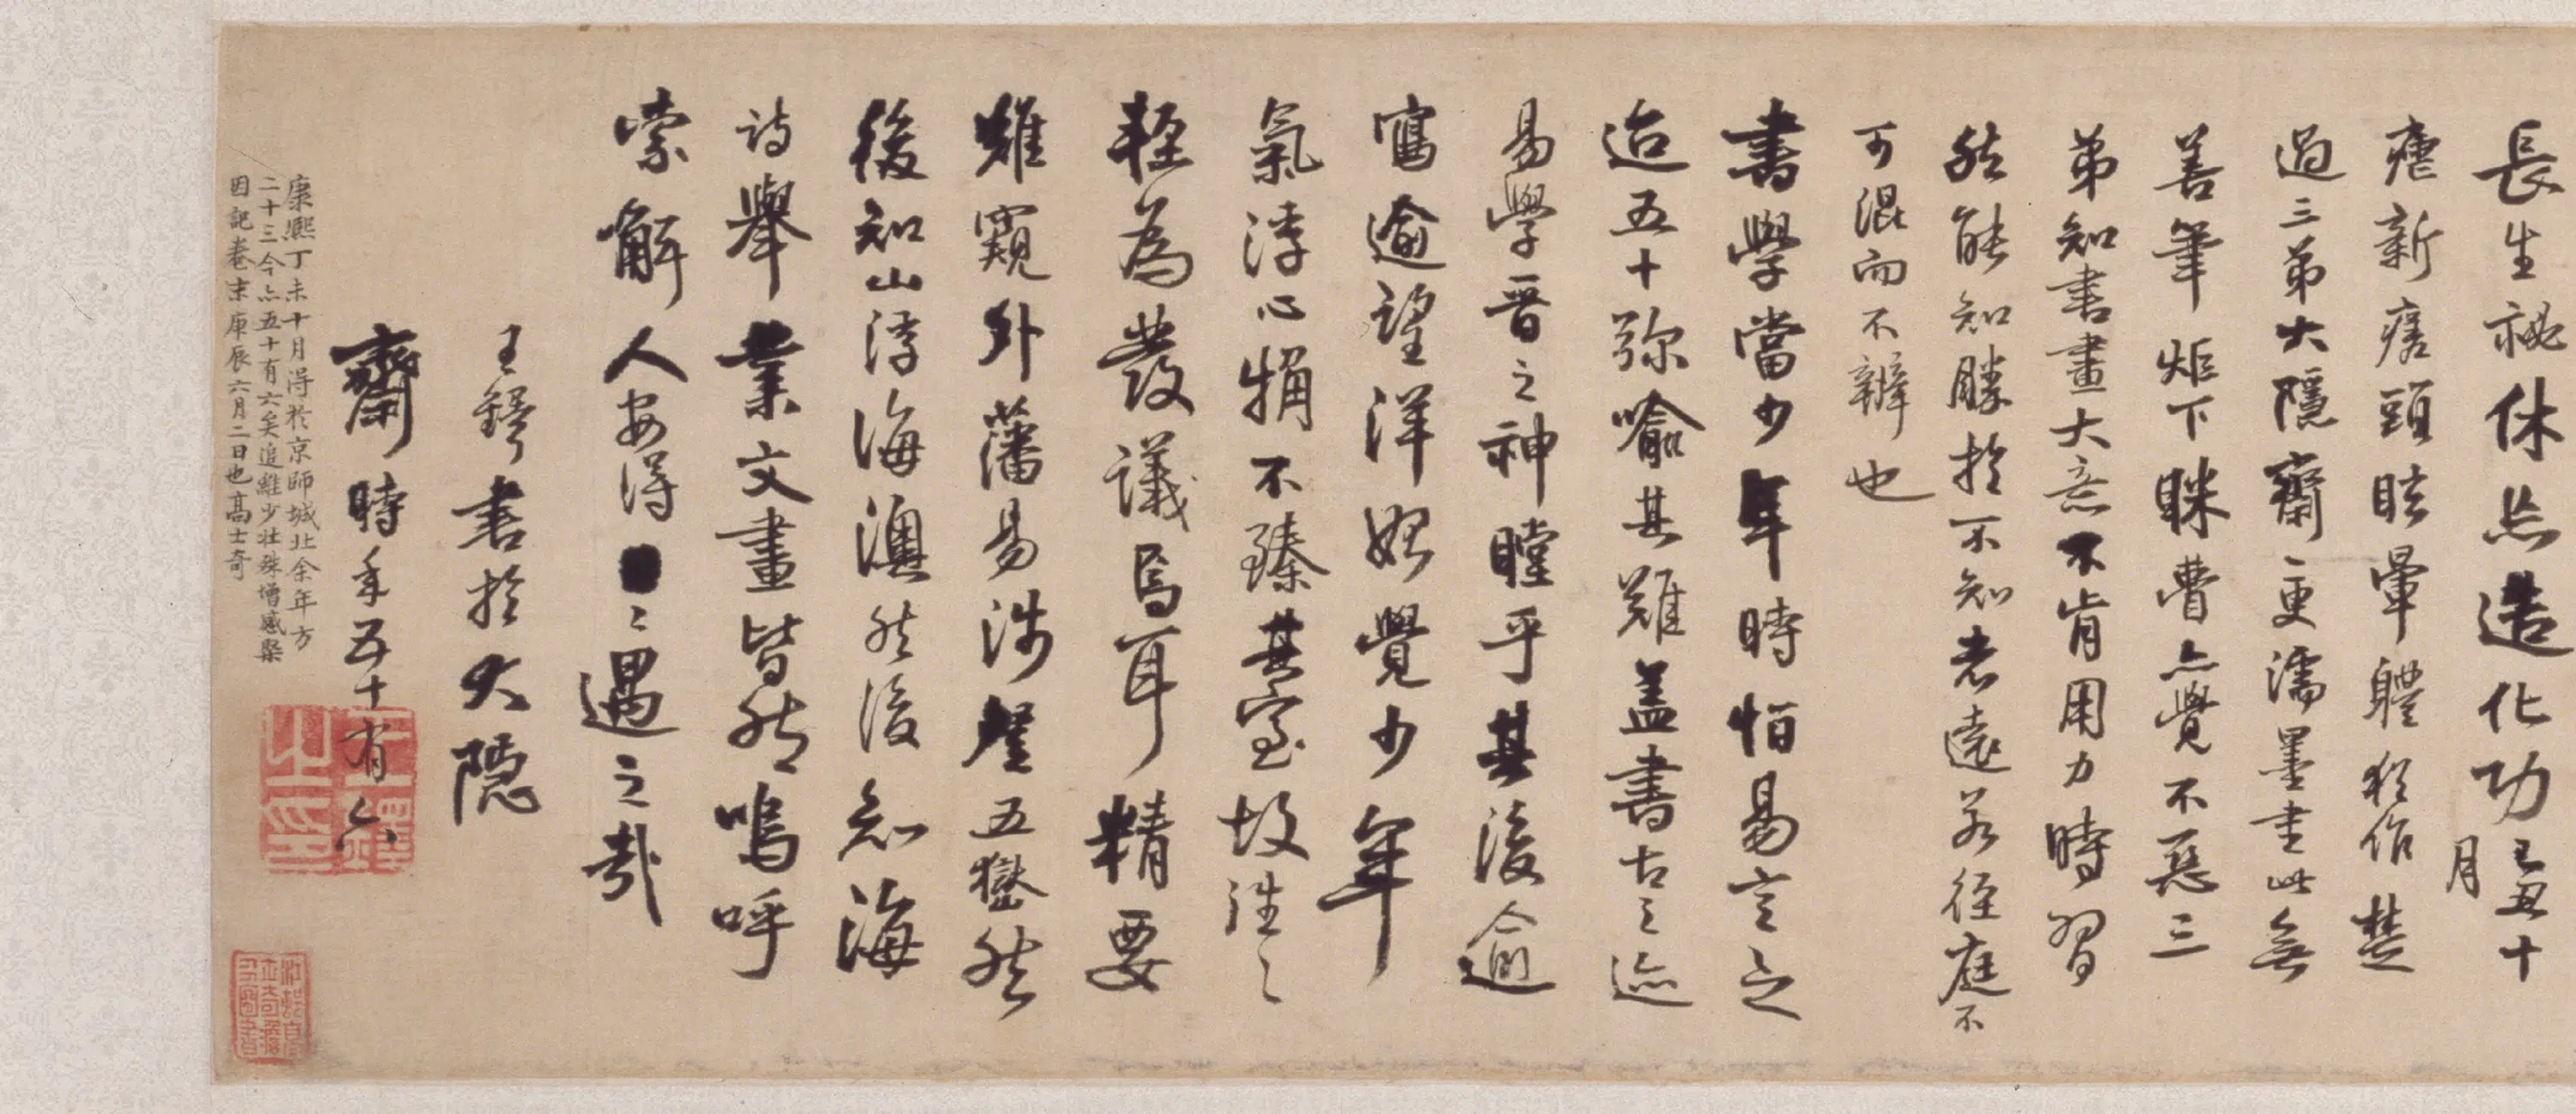 長生祕休點造化功己丑十
月
瘧新瘥頭眩暈軆猶作楚
過三弟大隱齋更濡墨書此無
善筆炬下眯瞢亦覺不惡三
弟知書畫大意不肯用力時習
然能知勝於不知者遠若徑庭不
可混而不辦也
書學當少年時怕易言之
迨五十弥喻其難盖書古之迹
易學晉之神瞠乎其後俞
寫逾望洋始覺少年
氣浮心捅不臻其室故往之
輕為發議焉耳精要
難窺外藩易涉登五嶽然
後知山浮海澳然後知海
詩舉業文畫皆然嗚呼
索解人安得  遇之哉
王鐸書於大隱
齋時年五十有六
王鐸之印
康熙丁未十月得於京師城北余年方
二十三今亦五十有六矣追維少壯殊增感槩
因記卷末庚辰六月二日也高士奇